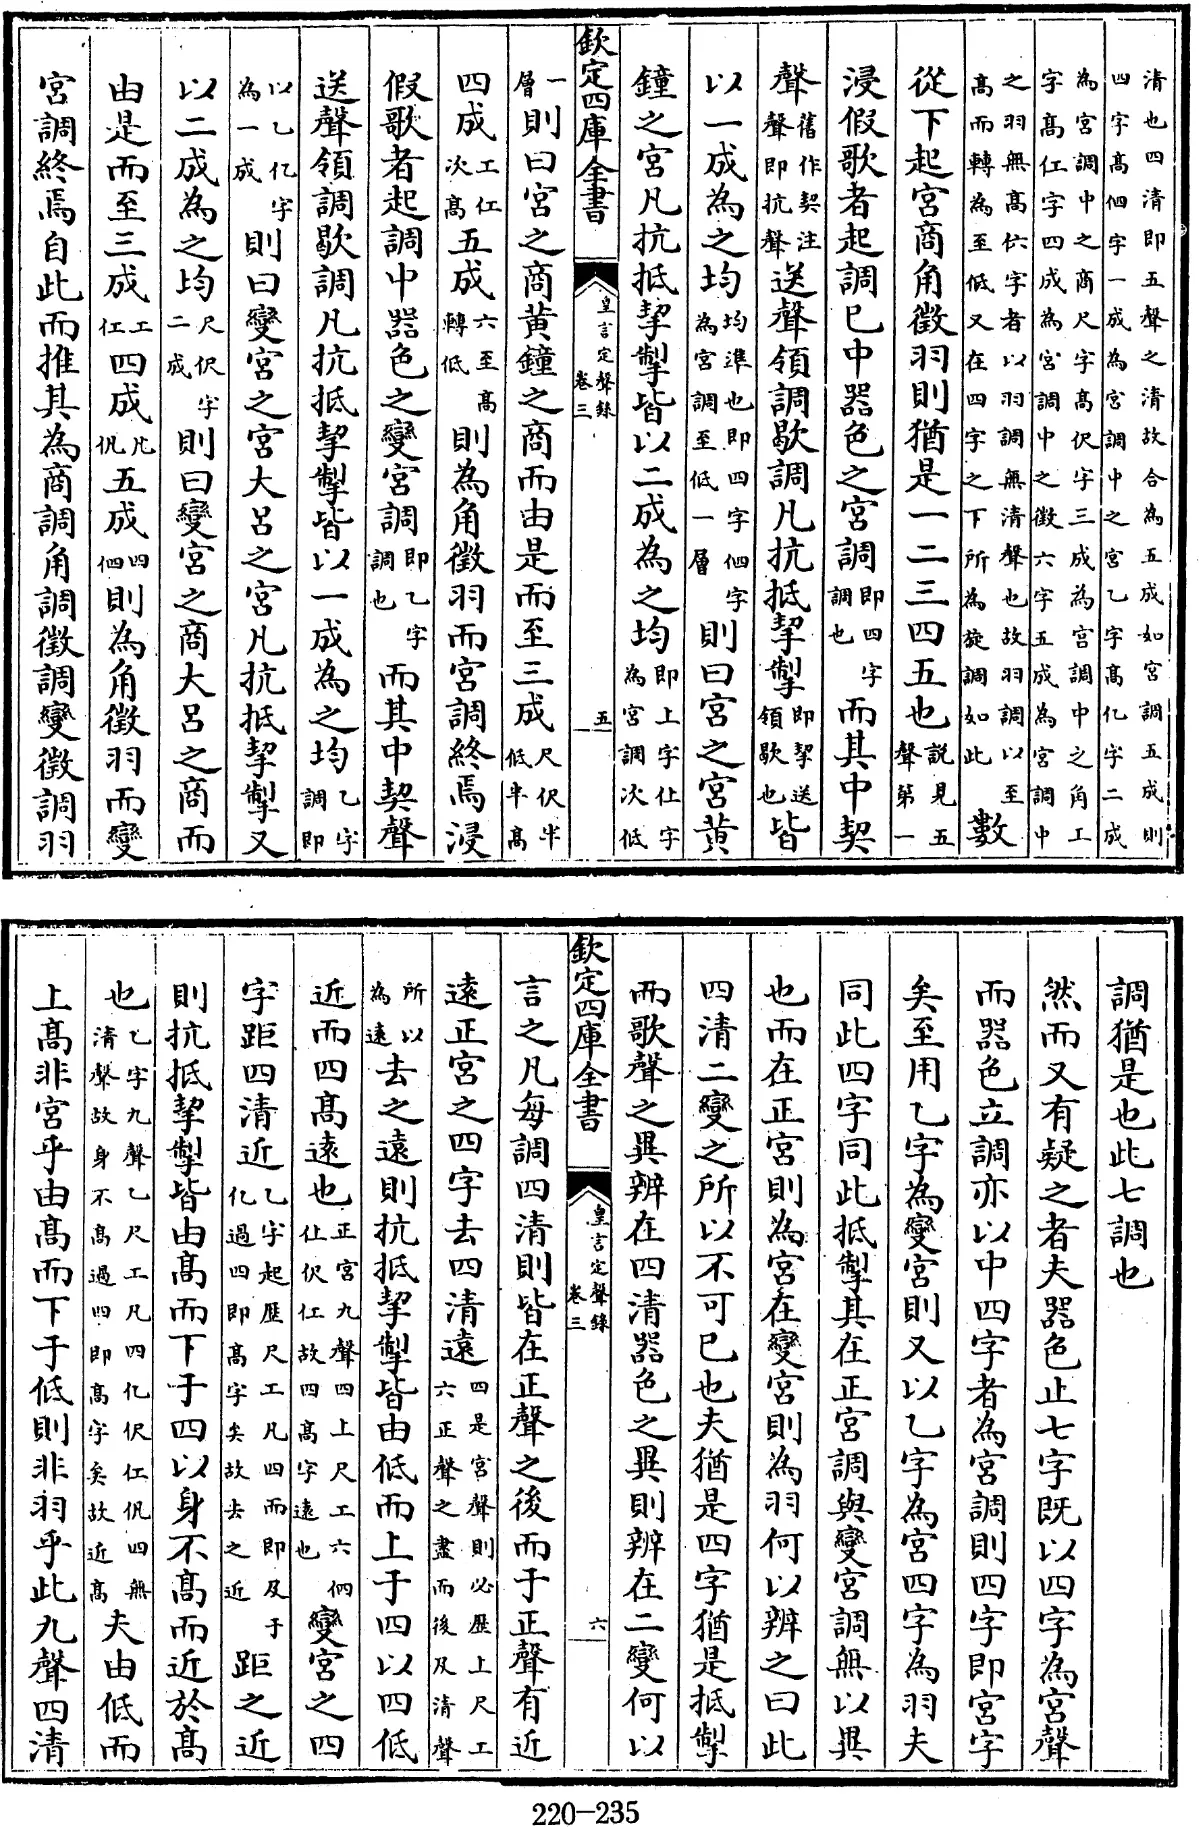 清也四清即五聲之清故合為五成如宮調五成則
四字高伵字一成為宮調中之宮乙字高亿字二成
為宮調中之商尺字高伬字三成為宮調中之角工
字高仜字四成為宮調中之徵六字五成為宮調中
之羽無高㐲字者以羽調無清聲也故羽調以至
高而轉為至低又在四字之下所為旋調如此數
從下起宮商角徵羽則猶是一二三四五也說見五聲第一
浸假歌者起調已中器色之宮調即四字調也而其中契
聲舊作契注聲即抗聲送聲領調歇調凡抗抵挈掣即挈送領歇也皆
以一成為之均均準也即四字伵字為宮調至低一層則曰宮之宮黃
鐘之宮凡抗抵挈掣皆以二成為之均即上字仩字為宮調次低
欽定四庫全書 皇言定聲錄 卷三 五
一層則曰宮之商黃鐘之商而由是而至三成尺伬半低半高
四成工仜次高五成六至高轉低則為角徵羽而宮調終焉浸
假歌者起調中器色之變宮調即乙字調也而其中契聲
送聲領調歇調凡抗抵挈掣皆以一成為之均乙字調即
以乙亿字為一成則曰變宮之宮大呂之宮凡抗抵挈掣又
以二成為之均尺伬字二成則曰變宮之商大呂之商而
由是而至三成工仜四成凡㐽五成四伵則為角徵羽而變
宮調終焉自此而推其為商調角調徵調變徵調羽
調猶是也此七調也
然而又有疑之者夫器色止七字既以四字為宮聲
而器色立調亦以中四字者為宮調則四字即宮字
矣至用乙字為變宮則又以乙字為宮四字為羽夫
同此四字同此抵掣其在正宮調與變宮調無以異
也而在正宮則為宮在變宮則為羽何以辨之曰此
四清二變之所以不可已也夫猶是四字猶是抵掣
而歌聲之異辨在四清器色之異則辨在二變何以
欽定四庫全書 皇言定聲錄 卷三 六
言之凡每調四清則皆在正聲之後而于正聲有近
遠正宮之四字去四清遠四是宮聲則必歷上尺工六正聲之盡而後及清聲
所以為遠去之遠則抗抵挈掣皆由低而上于四以四低
近而四高遠也正宮九聲四上尺工六伵仩伬仜故四高字遠也變宮之四
字距四清近乙字起歷尺工凡四而即及于亿過四即高字矣故去之近距之近
則抗抵挈掣皆由高而下于四以身不高而近於高
也乙字九聲乙尺工凡四亿伬仜㐽四無清聲故身不高過四即高字矣故近高夫由低而
上高非宮乎由高而下于低則非羽乎此九聲四清
220-235